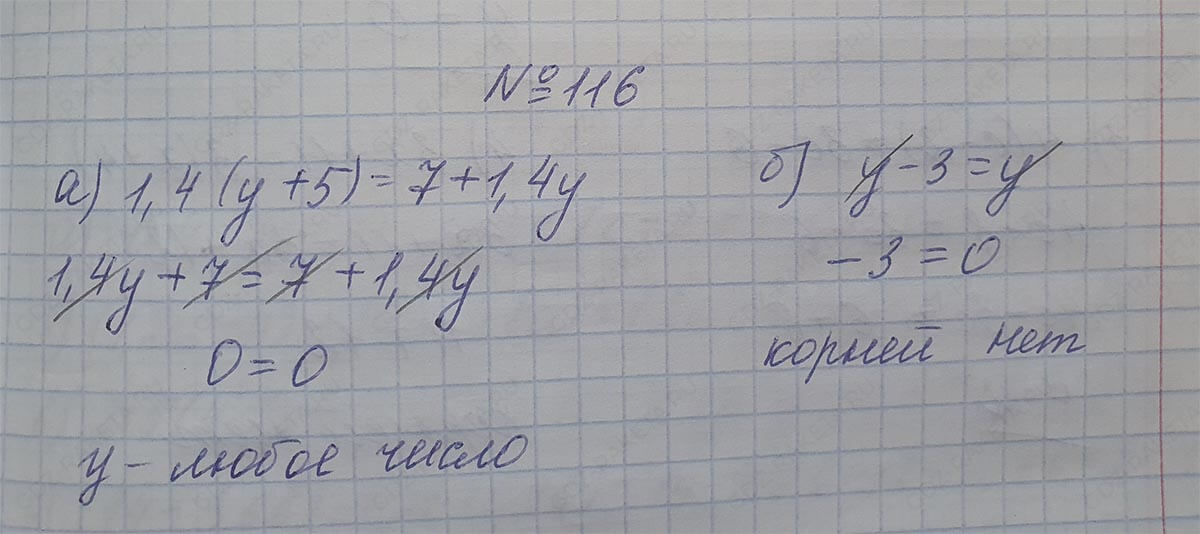 №116
а) 1,4(y+5)=7+1,4y
1,4y+7=7+1,4y
0=0
y - любое число
б) y-3=y
-3=0
корней нет